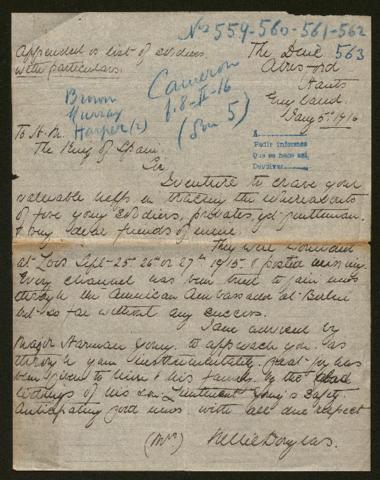 Nos 559-560-561-562
563
Appended is list of soldiers
with particulars.
The Dene
Alresford
Hants
England.
Jany 5th 1916
Cameron
1.8-II-16
(Son 5)
Brown
Murray
Harper (2)
To H.M.
The King of Spain.
A
Pedir informes
Que se hace así,
Devolver
Sir
I venture to crave your
valuable help in tracing the whereabouts
of five young soldiers, privates, yet gentlemen.
& very dear friends of mine.
They were wounded
at Loos Sept-25th 26th or 27th 1915. & posted missing
Every channel has been tried to gain news
through the American Ambassador at Berlin
but so far without any success.
I am advised by
Major Harman Young. to approach you. as
through your instrumentality great joy has
been given to him & his family by the glad
tidings of his Son Lieutenant Young's Safety.
Anticipating good news with all due respect
(Mrs) Nellie Douglas.